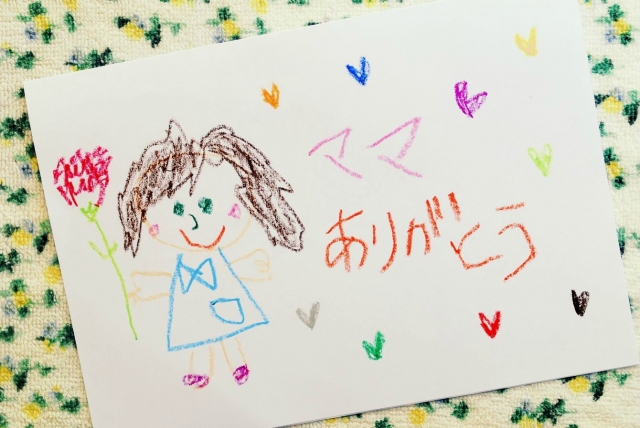 ママ
ありがとう